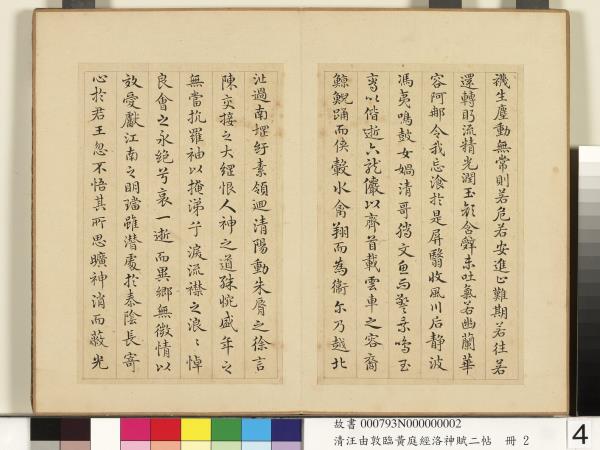 襪生塵動無常則若危若安進止難期若往若
還轉眄流精光潤玉顏含辭未吐氣若幽蘭華
容阿那令我忘飡於是屏翳收風川后静波
馮夷鳴鼓女媧清哥騰文魚而警乗鳴玉
鸞以偕逝六龍儼以齊首載雲車之容裔
鯨鯢踊而俠轂水禽翔而為衞尒乃越北
沚過南堽紆素領迴清陽動朱脣之徐言
陳交接之大經恨人神之道殊怨盛年之
無當抗羅袖以掩涕兮淚流襟之浪〻悼
良會之永絶兮哀一逝而異鄉無微情以
效愛獻江南之明璫雖潛處於泰陰長寄
心於君王忽不悟其所思曠神消而蔽光
故書 000793N000000002
清汪由敦臨黃庭經洛神賦二帖 冊 2
4